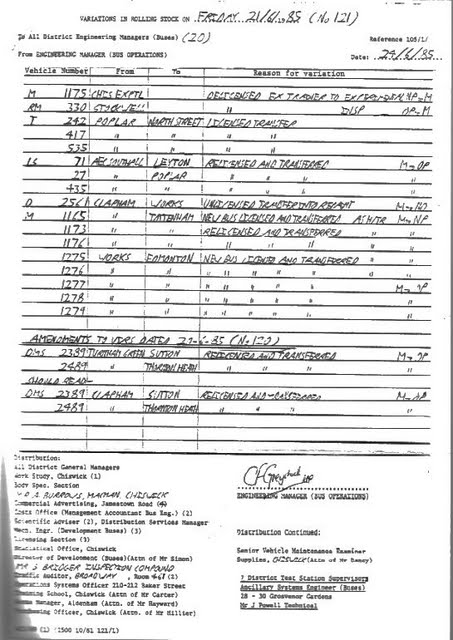 VARIATIONS IN ROLLING STOCK ON FRIDAY 21/6/85 (No 121)
To All District Engineering Managers (Buses) (20)
Reference 105/1/
From ENGINEERING MANAGER (BUS OPERATIONS)
Date:
Vehicle Number From To Reason for variation
M 1175 CHIS EXPTL DELICENSED EX TRAINER TO EXPERIMENTAL
RM 330 STOCKWELL " DISP
T 242 POPLAR NORTH STREET LICENSED TRANSFER
417 " " " "
535 " " " "
LS 71 AEC SOUTHALL LEYTON RELICENSED AND TRANSFERRED
27 " POPLAR " " "
435 " " " " "
D 2561 CLAPHAM WORKS UNLICENSED TRANSFER INTO REPAINT
M 1165 " TOTTENHAM NEW BUS LICENSED AND TRANSFERRED
1173 " " RELICENSED AND TRANSFERRED
1176 " " " " "
1275 WORKS EDMONTON NEW BUS LICENSED AND TRANSFERRED
1276 " " " " " "
1277 " " " " " "
1278 " " " " " "
1279 " " " " " "
AMENDMENTS TO VIRS DATED (No 120)
DMS 2389 TURNHAM GREEN SUTTON RELICENSED AND TRANSFERRED
2489 " THORNTON HEATH " " "
SHOULD READ
DMS 2389 CLAPHAM SUTTON RELICENSED AND TRANSFERRED
2489 " THORNTON HEATH " " "
Distribution:
All District General Managers
Work Study, Chiswick (1)
Body Spec. Section
A BURROWS, CHISWICK
Commercial Advertising, Jamestown Road
Costs Office (Management Accountant Bus Eng.) (2)
Scientific Adviser (2), Distribution Services Manager
Mech. Engr. (Development Buses) (3)
Licensing Section (3)
Statistical Office, Chiswick
Director of Development (Buses)(Attn of Mr Simon)
MR J BRIDGER INSPECTION COMPOUND
Traffic Auditor, BROADWAY, Room 461 (2)
Operations Systems Officer 210-212 Baker Street
Training School, Chiswick (Attn of Mr Carter)
Works Manager, Aldenham (Attn of Mr Hayward)
Engineering Officer, Chiswick (Attn of Mr Hillier)
(1) (2500 10/81 121/1)
ENGINEERING MANAGER (BUS OPERATIONS)
Distribution Continued:
Senior Vehicle Maintenance Examiner
Supplies, CHISWICK
7 District Test Station Supervisors
Ancillary Systems Engineer (Buses)
28 - 30 Grosvenor Gardens
Mr J Powell Technical